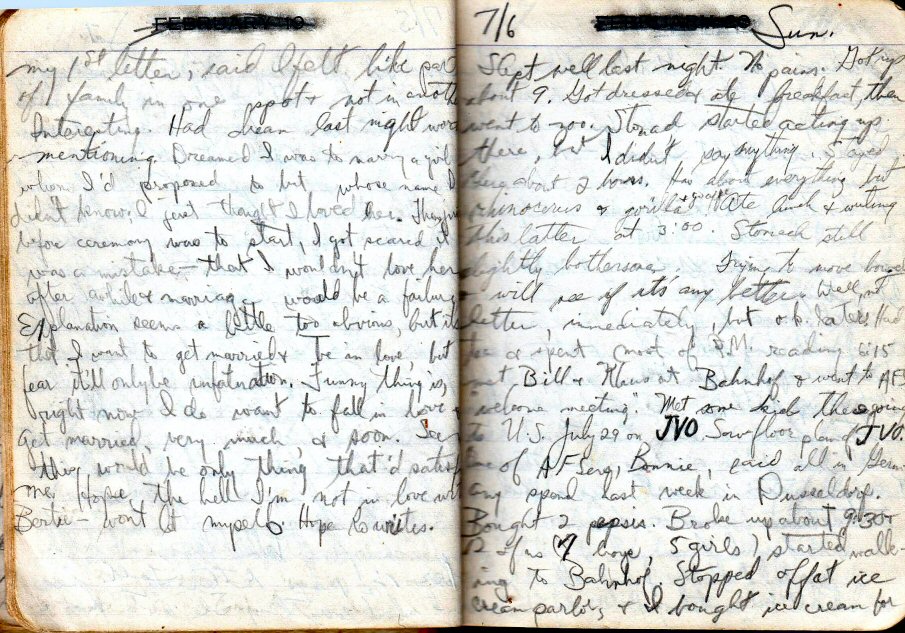 my 1st letter, said I felt like part
of 1 family in one spot & not in anothe
Interesting. Had dream last night wor
mentioning. Dreamed I was to marry a girl
whom I'd proposed to but whose name I
didn't know. I just thought I loved her. Then, just
before ceremony was to start, I got scared it
was a mistake – that I wouldn't love her
after awhile & marriage would be a failure
Explanation seems a little too obvious, but it's
that I want to get married & be in love, but
fear it'll only be infatuation. Funny thing is,
right now I do want to fall in love &
get married, very much, & soon.
this would be only thing that'd satisf
me. Hope the hell I'm not in love wit
– won't let myself. Hope writes.
7/6
Sun.
Slept well last night. No pains. Got up
about 9. Got dressed & ate breakfast, then
went to zoo. Stomach started acting up
there, but I didn't say anything. Stayed
there about 2 hours. Has about everything but
rhinocerus & gorilla. Ate lunch & writing
this latter at 3:00. Stomach still
slightly bothersome. Trying to move bowel
& will see if it's any better. Well, not
better, immediately, but o.k. later. Had
tea & spent most of P.M. reading. 6:15
met Bill & Klaus at Bahnhof & went to AFS
"welcome meeting." Met some kids there going
to U.S. July 29 on JVO. Saw floor plan of JVO.
One of AFSerg, Bonnie, said all in Germ-
any spend last week in Dusseldorf.
Bought 2 pepsis. Broke up about 9:30 &
of us (7 boys, 5 girls) started walk-
ing to Bahnhof. Stopped off at ice
cream parlor, & I bought ice cream for